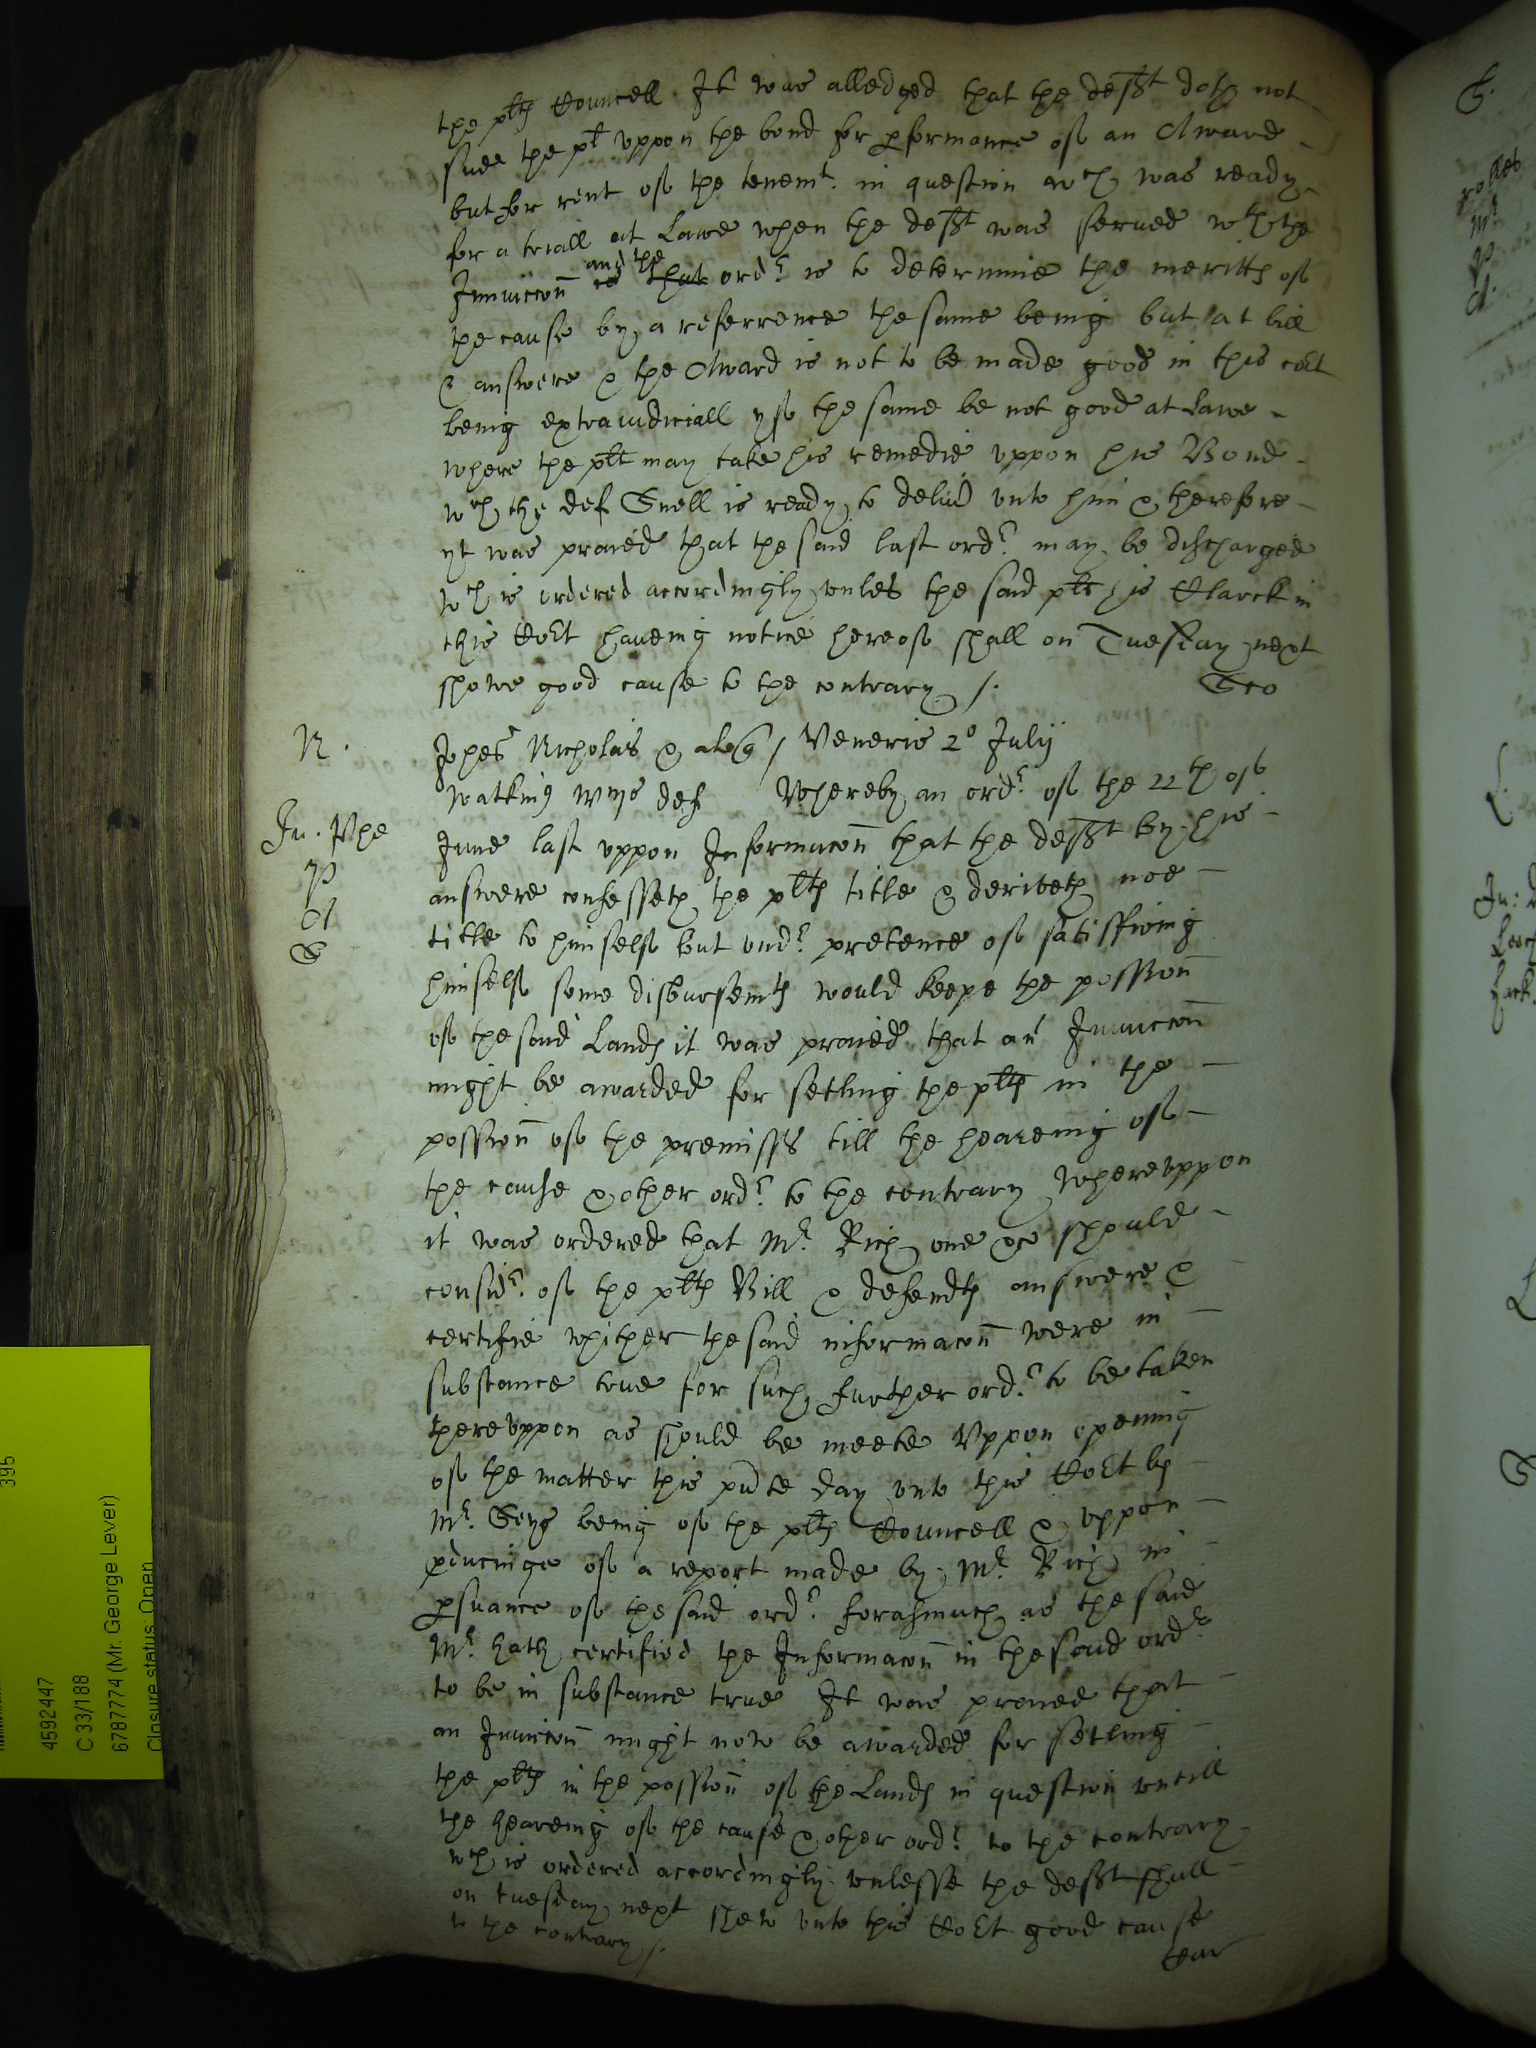 the pltes Councell It was alledged that the defft doth not
suee the plt uppon the bond for pformance of an Award
but for rent of the tenemt. in question wch was ready
for a triall at Lawe when the defft was served wth the
Iniuccon is that and the ordr is to determine the meritts of
the cause by a referrence the same being but at bill
& answere & the Award is not to be made good in this cort
being extraiudiciall yf the same be not good at Lawe
where the plt may take his remedie uppon his Bond
wch the def Snell is ready to deliũ unto him & therefore
yt was praied that the said last ordr. may be discharged
wch is ordered accordingly unles the said plts his Clarck in
this Cort haveing notice hereof shall on Tuesday next
shewe good cause to the contrary /.
Geo
N.
Johes Nicholas & al quer / Veneris 2o Julij
Watking Wms def Whereby an ordr. of the 22th of
Ju. Phe
June last uppon Informacon that the defft by his
P
answere confesseth the pltes title & deriveth noe
A
title to himself but undr. pretence of satisfiving
S
himself some disbursemts would keepe the possion
of the said Lands it was praied that an Iniuccon
might be awarded for setling the pltes in the
possion of the premisses till the heareing of
the cause & other ordr. to the contrary Whereuppon
it was ordered that Mr. Rich one &c should
considr. of the pltes Bill & defendts answere &
certifie whither the said informacon were in
substance true for such further ordr. to be taken
thereuppon as should be meete Uppon opening
of the matter this pnte day unto this Cort by
Mr. Seys being of the pltes Councell & uppon
pducinge of a report made by Mr. Rich in
psuance of the said ordr. forasmuch as the said
Mr. hath certified the Informacon in the said ordr.
to be in substance true It was praied that
an Iniuccon might now be awarded for setling
the pltes in the possion of the Lands in question untill
the heareing of the cause & other ordr. to the contrary
wch is ordered accordingly unlesse the defft shall
on tuesday next shew unto this Cort good cause
to the contrary /.
Car
395
4592447
C 33/188
6787774 (Mr. George Lever)
Closure status Open